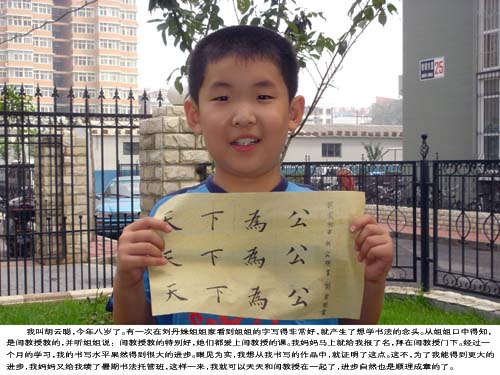 25
天下為公
天下為公
天下為公
我叫胡云聪,今年八岁了。有一次在刘丹姝姐姐家看到姐姐的字写得非常好,就产生了想学书法的念头。从姐姐口中得知,
是闾教授教的,并听姐姐说:闾教授教的特别好,她们都爱上闾教授的课。我妈妈马上就给我报了名,拜在闾教授门下。经过一
个月的学习,我的书写水平果然得到很大的进步。眼见为实,我想从我书写的作品中,就证明了这点。这不,为了我能得到更大的
进步,我妈妈又给我续了暑期书法托管班,这样一来,我就可以天天和闾教授在一起了,进步自然也是顺理成章的了。